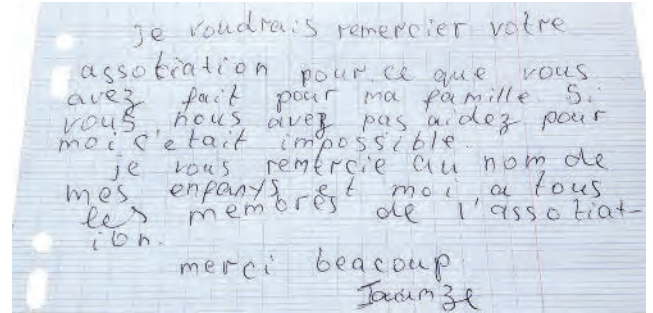 je voudrais remercier votre
assotiation pour ce que vous
avez fait pour ma famille. Si
vous nous avez pas aidez pour
moi s'etait impossible.
je vous remercie au nom de
mes enfanys et moi a tous
les membres de l'assotiat-
ion.
merci beacoup